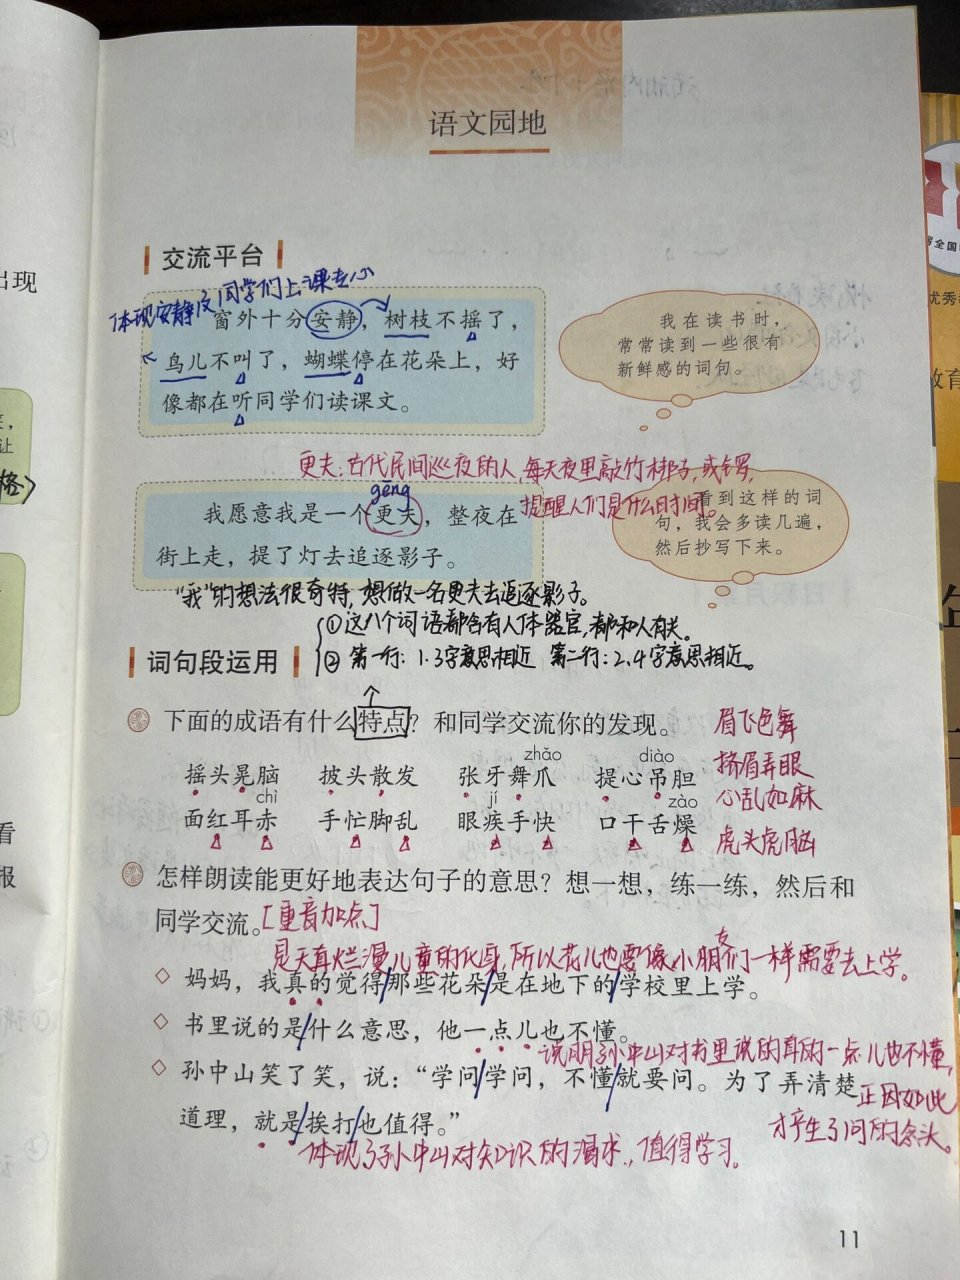 语文园地
交流平台
体现安静及同学们上课专心
窗外十分安静，树枝不摇了，
鸟儿不叫了，蝴蝶停在花朵上，好
像都在听同学们读课文。
我在读书时，
常常读到一些很有
新鲜感的词句。
更夫：古代民间巡夜的人，每天夜里敲竹梆子，或锣，
提醒人们是什么时间。
gēng
我愿意我是一个更夫，整夜在
街上走，提了灯去追逐影子。
看到这样的词
句，我会多读几遍，
然后抄写下来。
“我”的想法很奇特，想做一名更夫去追逐影子。
①这八个词语都含有人体器官，都和人有关。
② 第一行：1.3字意思相近 第二行：2.4字意思相近。
词句段运用
下面的成语有什么特点？和同学交流你的发现。
zhǎo diào
摇头晃脑 披头散发 张牙舞爪 提心吊胆
chì jí zào
面红耳赤 手忙脚乱 眼疾手快 口干舌燥
眉飞色舞
挤眉弄眼
心乱如麻
虎头虎脑
怎样朗读能更好地表达句子的意思？想一想，练一练，然后和
同学交流。[重音加点]
是天真烂漫儿童的化身，所以花儿也要像小朋友们一样需要去上学。
◇ 妈妈，我真的觉得/那些花朵/是在地下的/学校里上学。
◇ 书里说的是/什么意思，他一点儿也不懂。
说明孙中山对书里说的真的一点儿也不懂，
正因如此
才产生了问的念头。
◇ 孙中山笑了笑，说：“学问/学问，不懂/就要问。为了弄清楚
道理，就是/挨打/也值得。”
体现了孙中山对知识的渴求，值得学习。
11
出现
看
报
让
格〉
写全国
优秀
教育